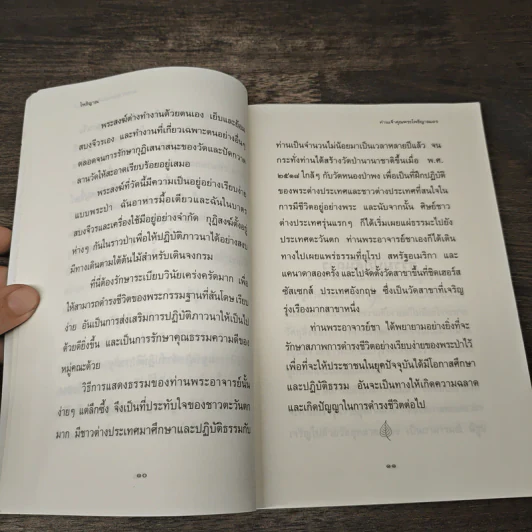 โพธิญาณ
พระสงฆ์ต่างทำงานด้วยตนเอง เย็บและย้อม
สบงจีวรเอง และทำงานที่เกี่ยวเฉพาะตนอย่างอื่นๆ
ตลอดจนการรักษากุฏิเสนาสนะของวัดและปัดกวาด
ลานวัดให้สะอาดเรียบร้อยอยู่เสมอ
พระสงฆ์ที่วัดนี้มีความเป็นอยู่อย่างเรียบง่าย
แบบพระป่า ฉันอาหารมื้อเดียวและฉันในบาตร
สบงจีวรและเครื่องใช้มีอยู่อย่างจำกัด กุฏิสงฆ์ตั้งอยู่
ห่างๆ กันในราวป่าเพื่อให้ปฏิบัติภาวนาได้อย่างสงบ
มีทางเดินตามใต้ต้นไม้สำหรับเดินจงกรม
ที่นี่ต้องรักษาระเบียบวินัยเคร่งครัดมาก เพื่อ
ให้สามารถดำรงชีวิตของพระกรรมฐานที่สันโดษ เรียบ
ง่าย อันเป็นการส่งเสริมการปฏิบัติภาวนาให้เป็นไป
ด้วยดียิ่งขึ้น และเป็นการรักษาคุณธรรมความดีของ
หมู่คณะด้วย
วิธีการแสดงธรรมของท่านพระอาจารย์นั้น
ง่ายๆ แต่ลึกซึ้ง จึงเป็นที่ประทับใจของชาวตะวันตก
มาก มีชาวต่างประเทศมาศึกษาและปฏิบัติธรรมกับ
๑๐
ท่านเจ้าคุณพระโพธิญาณเถร
ท่านเป็นจำนวนไม่น้อยมาเป็นเวลาหลายปีแล้ว จน
กระทั่งท่านได้สร้างวัดป่านานาชาติขึ้นเมื่อ พ.ศ.
๒๕๑๘ ใกล้ๆ กับวัดหนองป่าพง เพื่อเป็นที่ฝึกปฏิบัติ
ของพระต่างประเทศและชาวต่างประเทศที่สนใจใน
การมีชีวิตอยู่อย่างพระ และนับจากนั้น ศิษย์ชาว
ต่างประเทศรุ่นแรกๆ ก็ได้เริ่มเผยแผ่ธรรมะไปยัง
ประเทศตะวันตก ท่านพระอาจารย์ชาเองก็ได้เดิน
ทางไปเผยแพร่ธรรมที่ยุโรป สหรัฐอเมริกา และ
แคนาดาสองครั้ง และไปจัดตั้งวัดสาขาขึ้นที่ชิตเฮอร์ส
ซัสเซกส์ ประเทศอังกฤษ ซึ่งเป็นวัดสาขาที่เจริญ
รุ่งเรืองมากสาขาหนึ่ง
ท่านพระอาจารย์ชา ได้พยายามอย่างยิ่งที่จะ
รักษาสภาพการดำรงชีวิตอย่างเรียบง่ายของพระป่าไว้
เพื่อที่จะให้ประชาชนในยุคปัจจุบันได้มีโอกาสศึกษา
และปฏิบัติธรรม อันจะเป็นทางให้เกิดความฉลาด
และเกิดปัญญาในการดำรงชีวิตต่อไป
๑๑